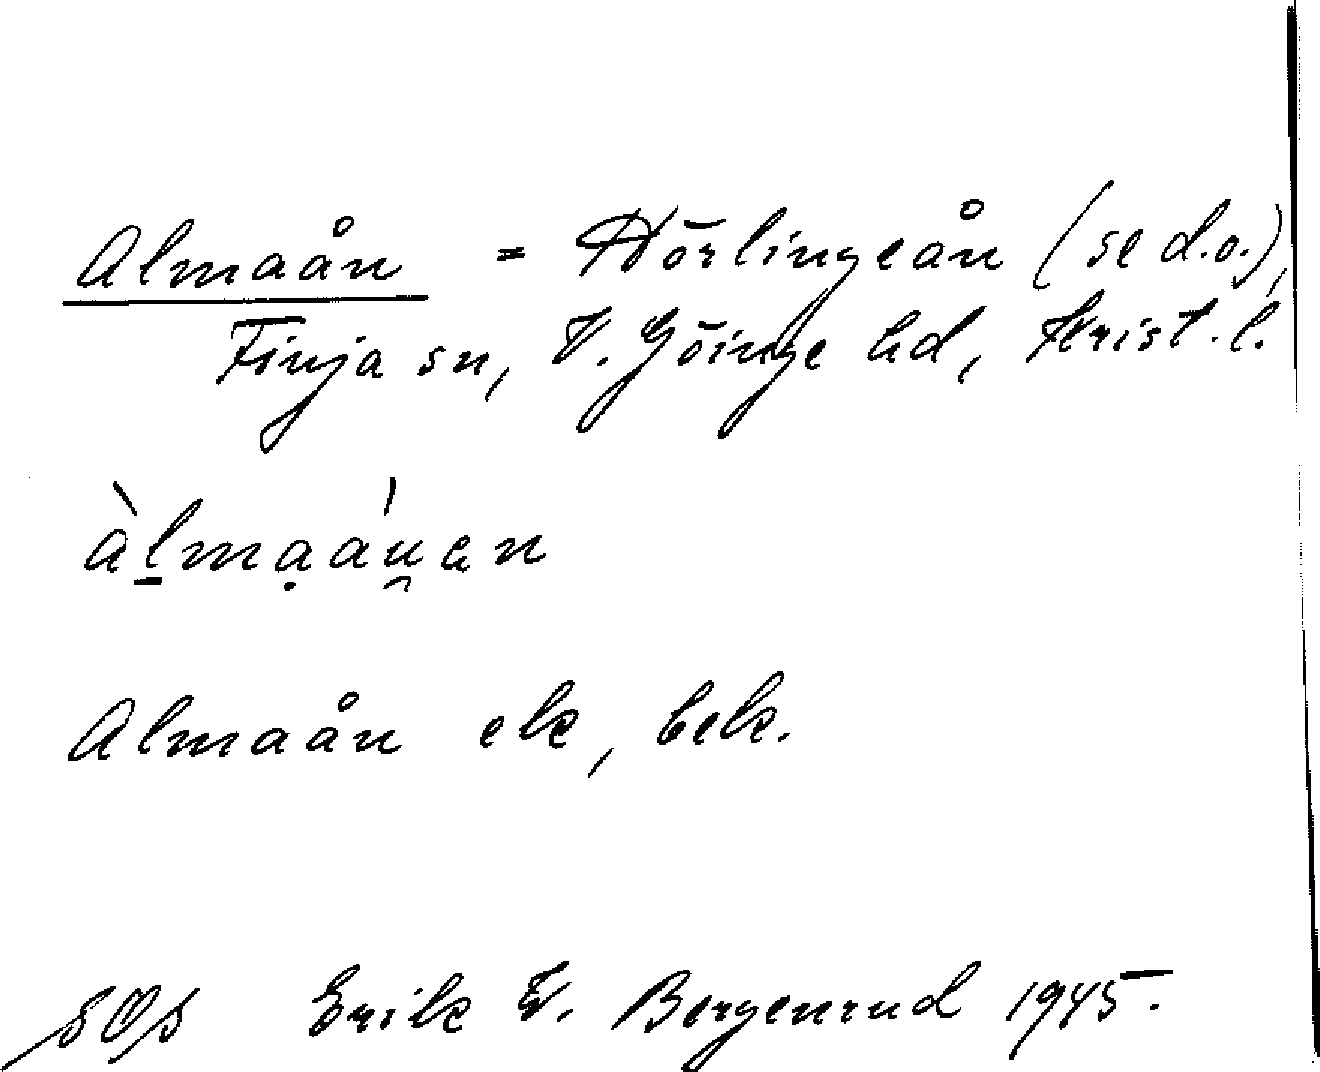 Almaån = Hörlingeån (se d.o.),
Finja sn, V. Göinge hd, Krist. l.
Almaån ek, bek.
Erik W. Bergenrud 1945.